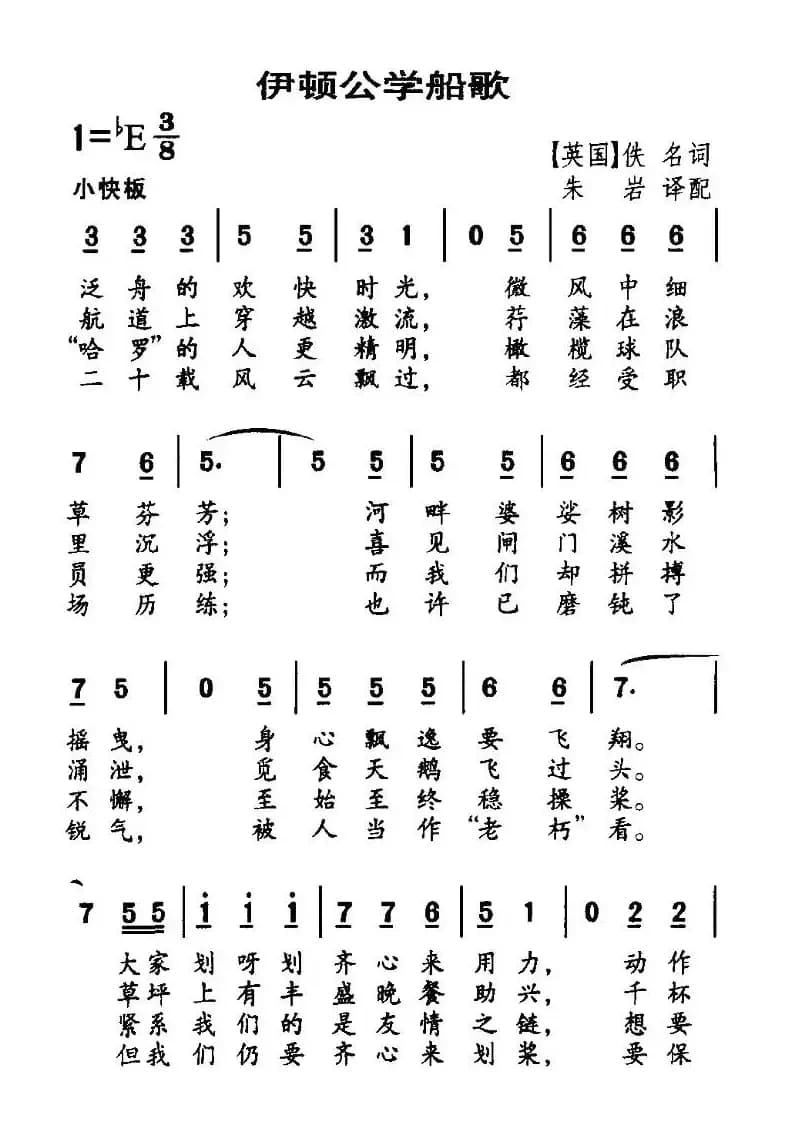 伊顿公学船歌
1=♭E 3/8
【英国】佚 名 词
小快板
朱 岩 译配
3 3 3 | 5 5 | 3 1 | 0 5 | 6 6 6 |
泛 舟 的 欢 快 时 光， 微 风 中 细
航 道 上 穿 越 激 流， 荇 藻 在 浪
“哈 罗”的 人 更 精 明， 橄 榄 球 队
二 十 载 风 云 飘 过， 都 经 受 职
7 6 | 5. | 5 5 | 5 5 5 | 6 6 6 |
草 芬 芳； 河 畔 婆 娑 树 影
里 沉 浮； 喜 见 闸 门 溪 水
员 更 强； 而 我 们 却 拼 搏
场 历 练； 也 许 已 磨 钝 了
7 5 | 0 5 | 5 5 5 | 6 6 | 7. |
摇 曳， 身 心 飘 逸 要 飞 翔。
涌 泄， 觅 食 天 鹅 飞 过 头。
不 懈， 至 始 至 终 稳 操 桨。
锐 气， 被 人 当 作 “老 朽”看。
7 5 5 | i i i | 7 7 6 | 5 1 | 0 2 2 |
大 家 划 呀 划 齐 心 来 用 力， 动 作
草 坪 上 有 丰 盛 晚 餐 助 兴， 千 杯
紧 系 我 们 的 是 友 情 之 链， 想 要
但 我 们 仍 要 齐 心 来 划 桨， 要 保